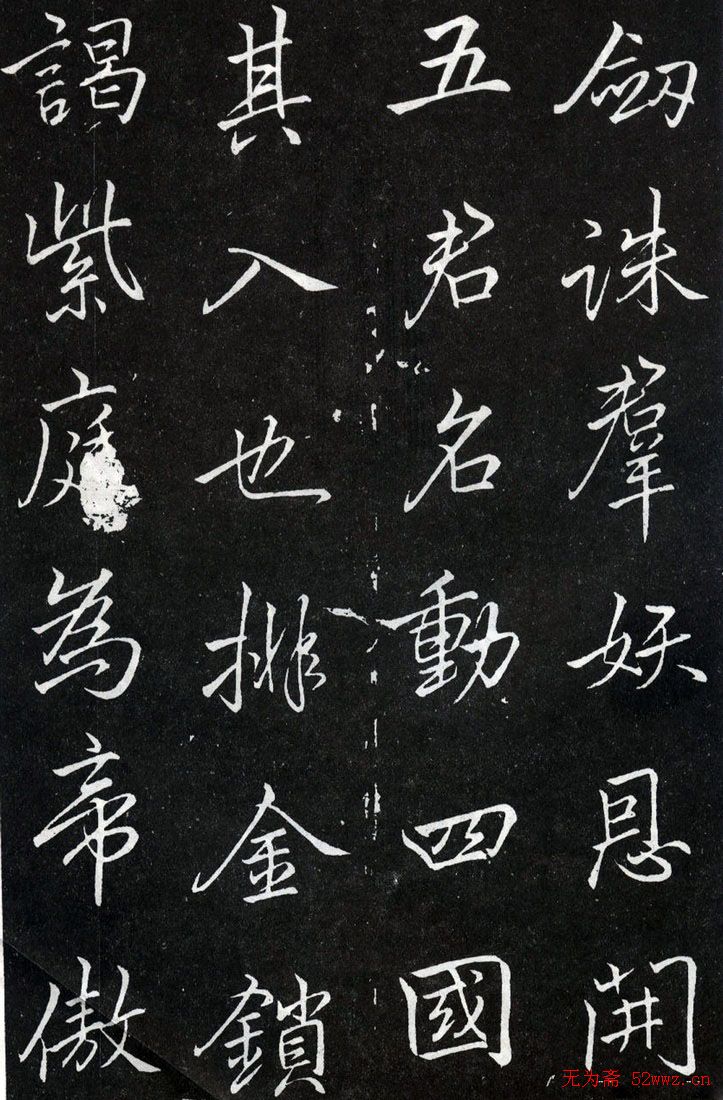 劒誅羣妖恩開
五君名動四國
其入也排金鎖
謁紫庭為帝傲
无为斋 52wwz.cn